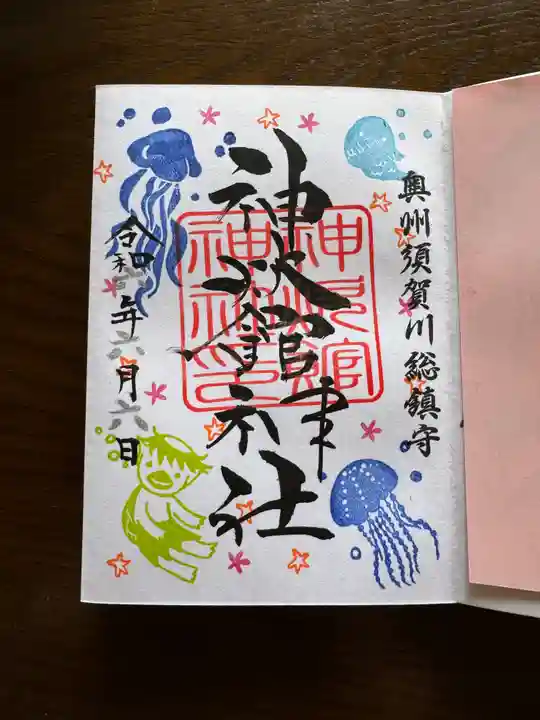 奥州須賀川総鎮守
神炊館神社
神炊館
神社印
令和六年六月六日